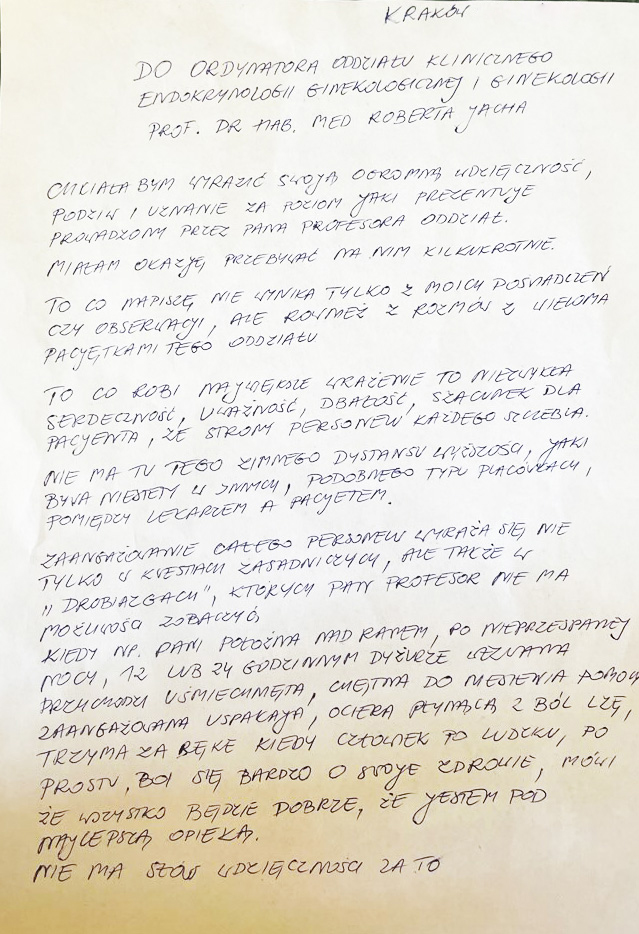 KRAKÓW
DO ORDYNATORA ODDZIAŁU KLINICZNEGO
ENDOKRYNOLOGII GINEKOLOGICZNEJ I GINEKOLOGII
PROF. DR HAB. MED ROBERTA JACHA
CHCIAŁA BYM WYRAZIĆ SWOJĄ OGROMNĄ WDZIĘCZNOŚĆ,
PODZIW I UZNANIE ZA POZIOM JAKI PREZENTUJE
PROWADZONY PRZEZ PANA PROFESORA ODDZIAŁ.
MIAŁAM OKAZJĘ PRZEBYWAĆ NA NIM KILKUKROTNIE.
TO CO NAPISZĘ NIE WYNIKA TYLKO Z MOICH DOŚWIADCZEŃ
CZY OBSERWACJI, ALE RÓWNIEŻ Z ROZMÓW Z WIELOMA
PACJĘTKAMI TEGO ODDZIAŁU
TO CO ROBI NAJWIĘKSZE WRAŻENIE TO NIEZWYKŁA
SERDECZNOŚĆ, UWAŻNOŚĆ, DBAŁOŚĆ, SZACUNEK DLA
PACJENTA, ZE STRONY PERSONELU KAŻDEGO SZCZEBLA.
NIE MA TU TEGO ZIMNEGO DYSTANSU WYŻSZOŚCI, JAKI
BYWA NIESTETY W INNYCH, PODOBNEGO TYPU PLACÓWKACH,
POMIĘDZY LEKARZEM A PACJETEM.
ZAANGAŻOWANIE CAŁEGO PERSONELU WYRAŻA SIĘ NIE
TYLKO W KWESTIACH ZASADNICZYCH, ALE TAKŻE W
„DROBIAZGACH", KTÓRYCH PAN PROFESOR NIE MA
MOŻLIWOŚCI ZOBACZYĆ.
KIEDY NP. PANI POŁOŻNA NAD RANEM, PO NIEPRZESPANEJ
NOCY, 12 LUB 24 GODZINNYM DYŻURZE WEZWANA
PRZYCHODZI UŚMIECHNIĘTA, CHĘTNA DO NIESIENIA POMOCY
ZAANGAŻOWANA USPAKAJA, OCIERA PŁYNĄCĄ Z BÓL ŁZĘ,
TRZYMA ZA RĘKĘ KIEDY CZŁOWIEK PO LUDZKU, PO
PROSTU, BOI SIĘ BARDZO O SWOJE ZDROWIE, MÓWI
ŻE WSZYSTKO BĘDZIE DOBRZE, ŻE JESTEM POD
NAJLEPSZĄ OPIEKĄ.
NIE MA SŁÓW WDZIĘCZNOŚCI ZA TO